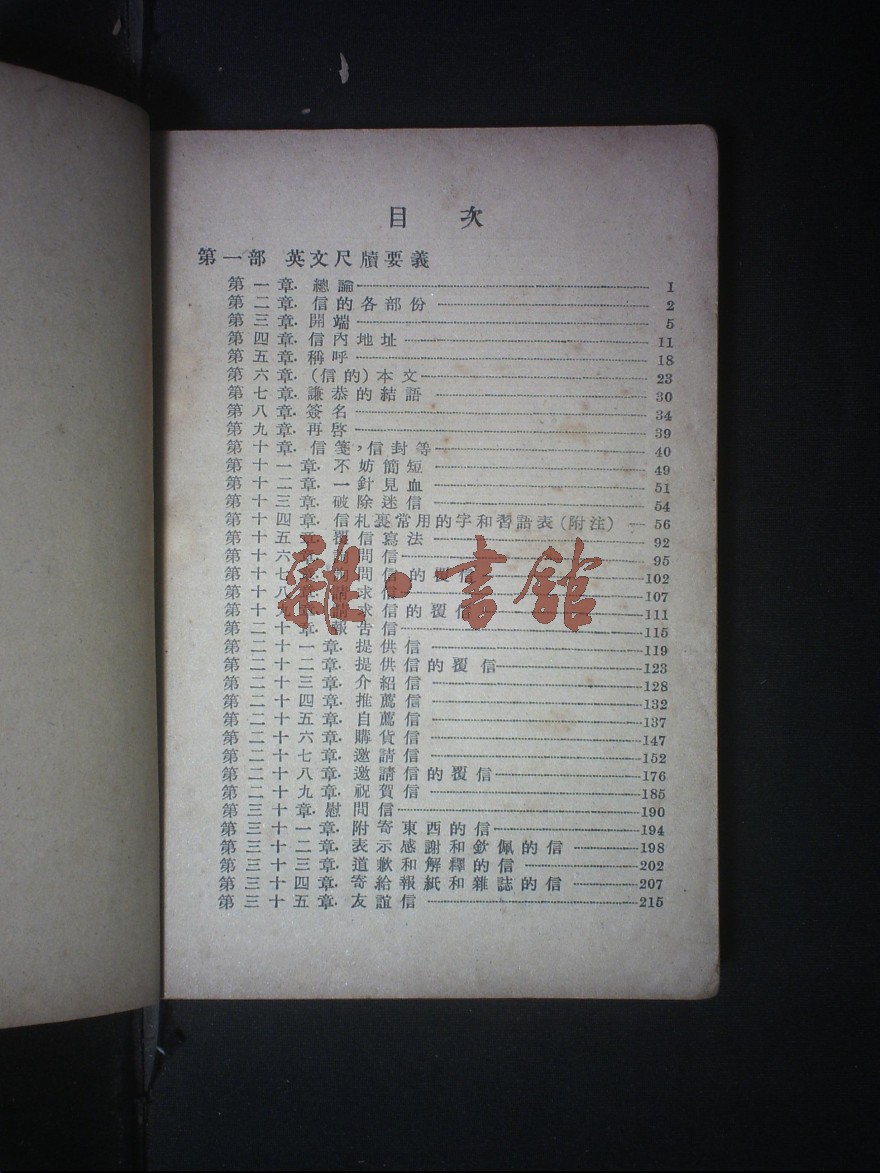 目 次
第一部 英文尺牘要義
第一章. 總論 1
第二章. 信的各部份 2
第三章. 開端 5
第四章. 信內地址 11
第五章. 稱呼 18
第六章. (信的)本文 23
第七章. 謙恭的結語 30
第八章. 簽名 34
第九章. 再啓 39
第十章. 信箋,信封等 40
第十一章. 不妨簡短 49
第十二章. 一針見血 51
第十三章. 破除迷信 54
第十四章. 信札裏常用的字和習語表(附注) 56
第十五章. 覆信寫法 92
第十六章. 問信 95
第十七章. 問信的覆信 102
第十八章. 請求信 107
第十九章. 請求信的覆信 111
第二十章. 報告信 115
第二十一章. 提供信 119
第二十二章. 提供信的覆信 123
第二十三章. 介紹信 128
第二十四章. 推薦信 132
第二十五章. 自薦信 137
第二十六章. 購貨信 147
第二十七章. 邀請信 152
第二十八章. 邀請信的覆信 176
第二十九章. 祝賀信 185
第三十章. 慰問信 190
第三十一章. 附寄東西的信 194
第三十二章. 表示感謝和欽佩的信 198
第三十三章. 道歉和解釋的信 202
第三十四章. 寄給報紙和雜誌的信 207
第三十五章. 友誼信 215
雜·書館